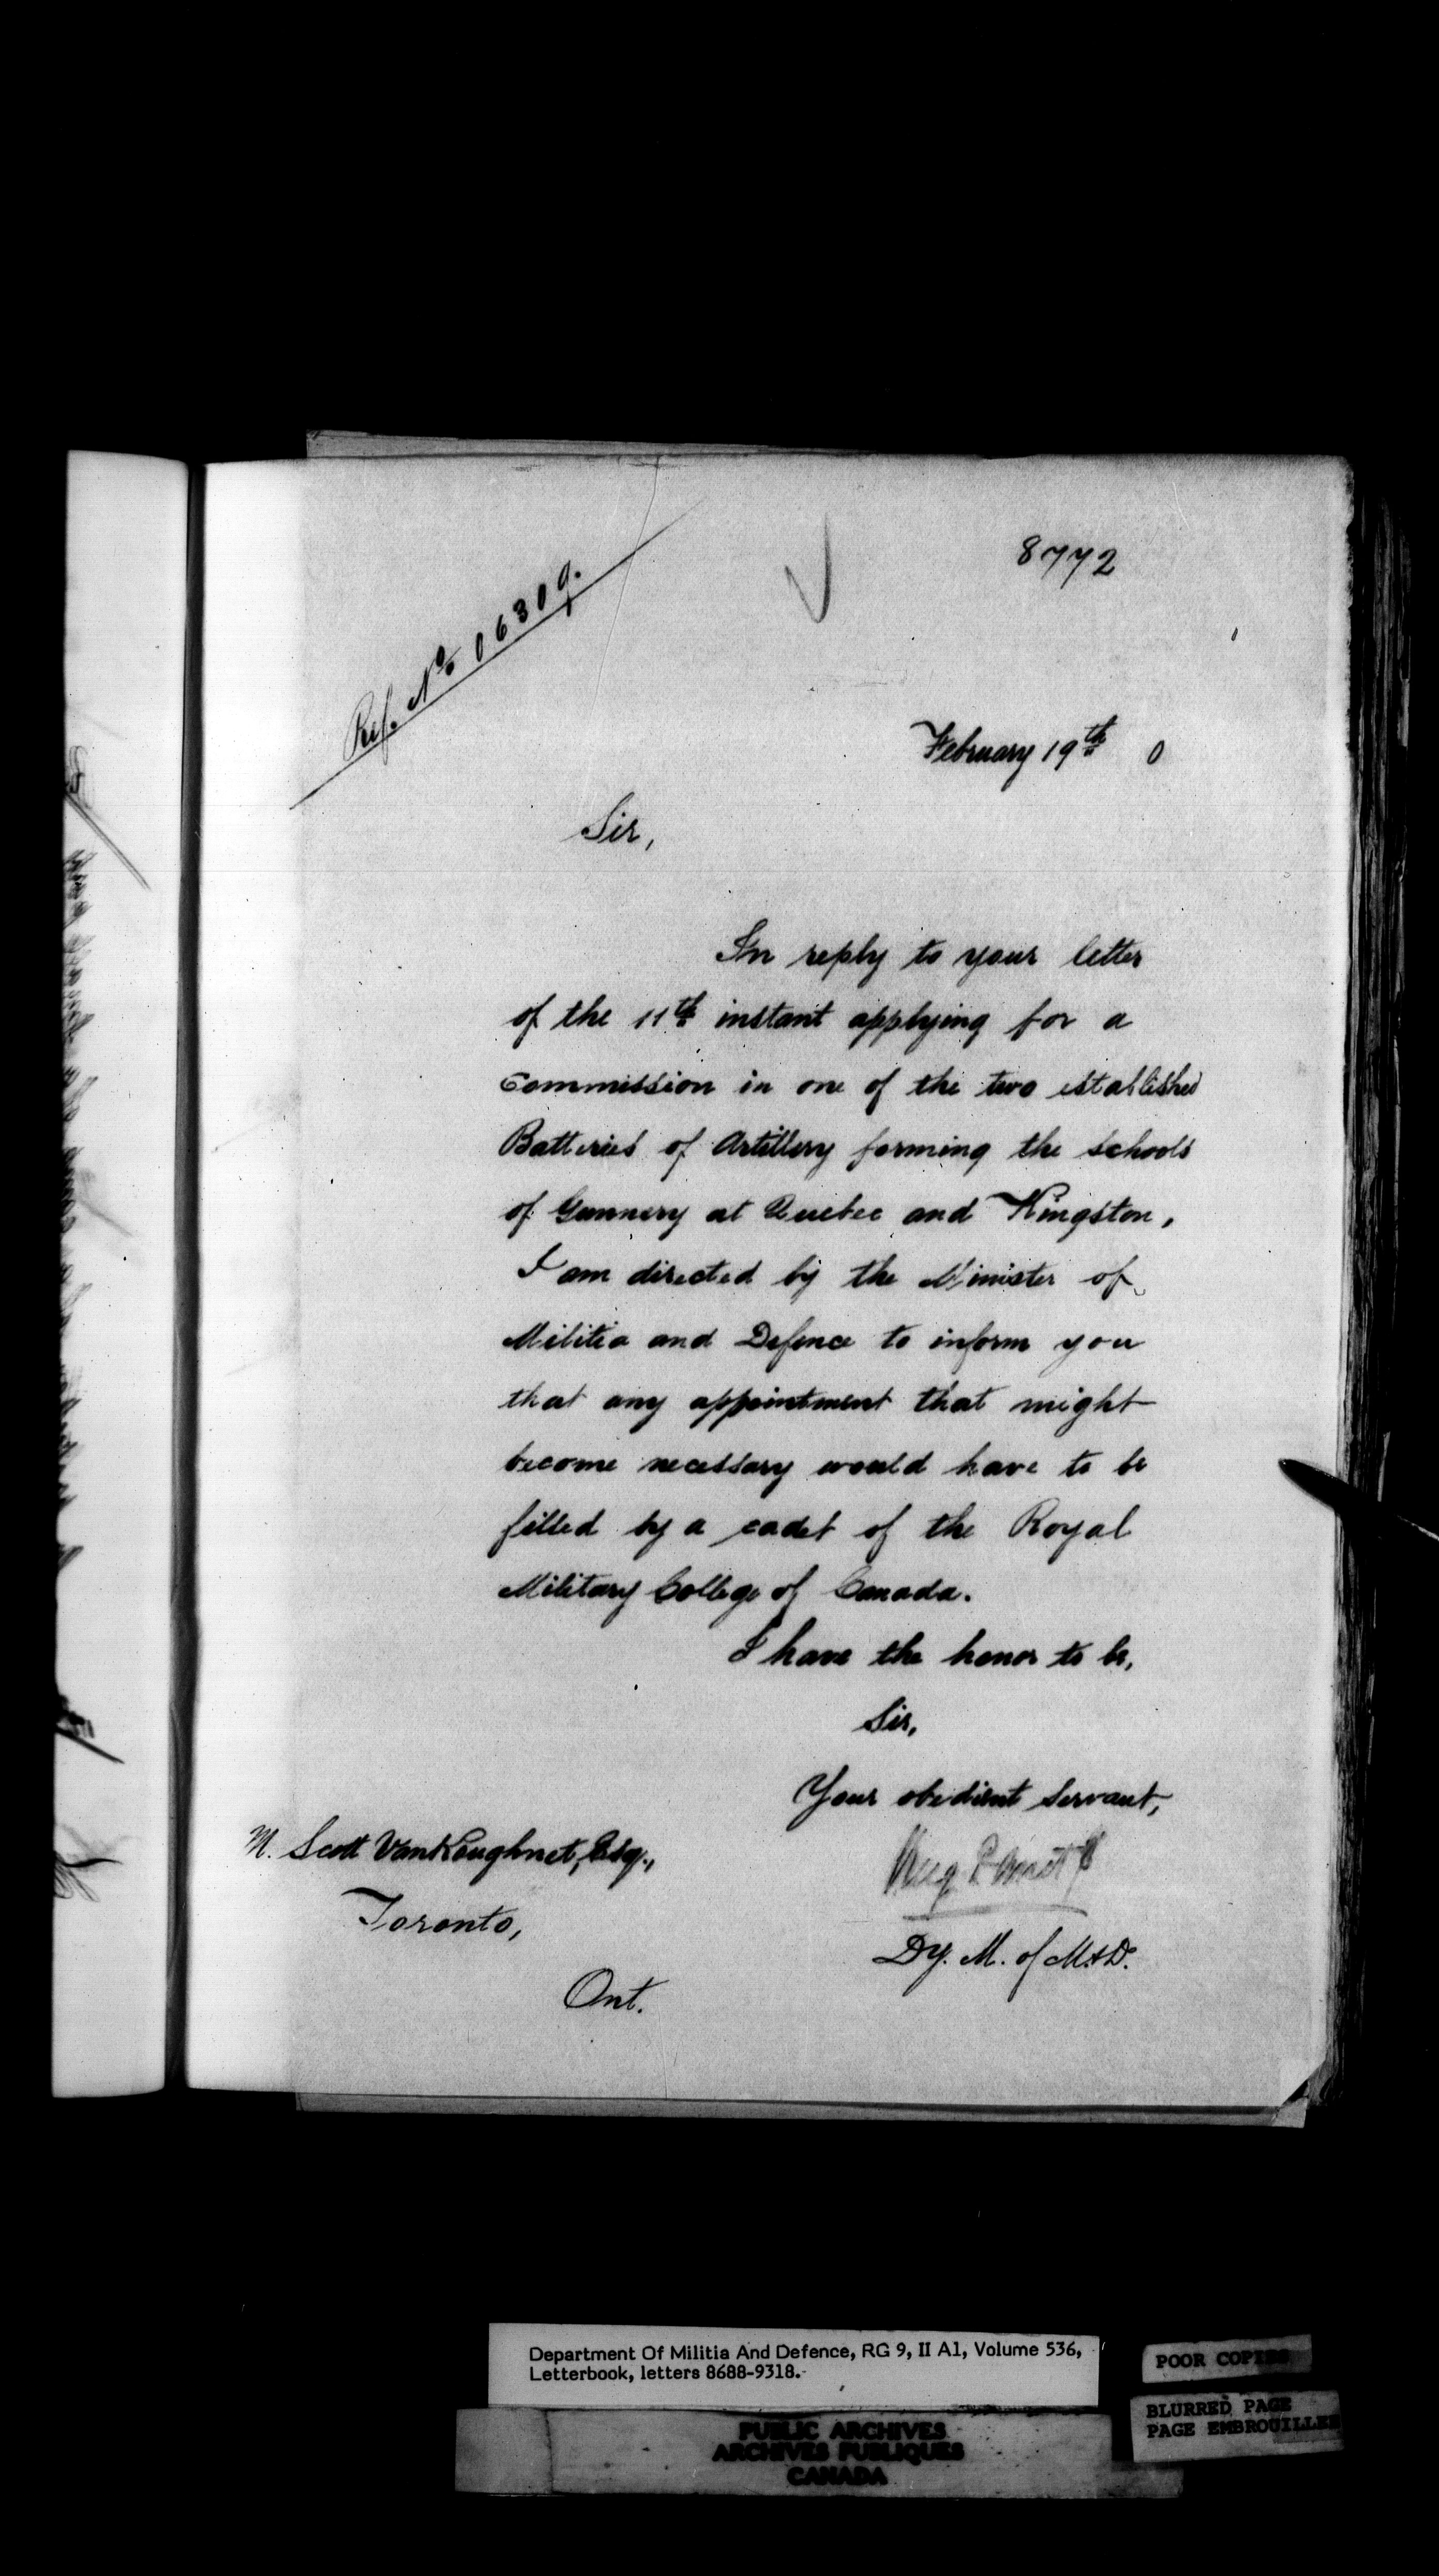 8772
Ref. No 06309.
February 19th 0
Sir,
In reply to your letter
of the 11th instant applying for a
Commission in one of the two established
Batteries of Artillery forming the schools
of Gunnery at Quebec and Kingston,
I am directed by the Minister of
Militia and Defence to inform you
that any appointment that might
become necessary would have to be
filled by a cadet of the Royal
Military College of Canada.
I have the honor to be,
Sir,
Your obedient servant,
M. Scott VanKoughnet, Esq.,
Toronto,
Ont.
Dy. M. of M.&D.
Department Of Militia And Defence, RG 9, II A1, Volume 536,
Letterbook, letters 8688-9318.
POOR COPIES
BLURRED PAGE
PAGE EMBROUILLEE
PUBLIC ARCHIVES
ARCHIVES PUBLIQUES
CANADA